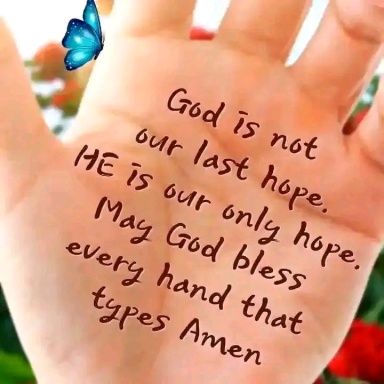 God is not
our last hope.
HE is our only hope.
May God bless
every hand that
types Amen